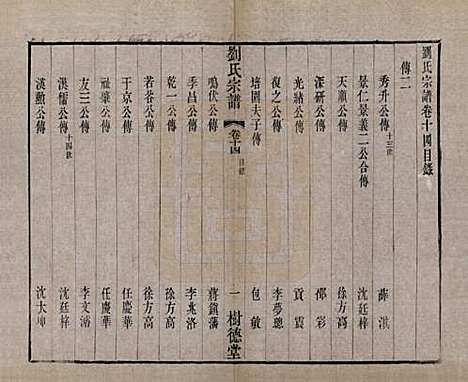 劉氏宗譜卷十四目錄
傳二
秀升公傳 十三世 薛淇
景仁景義二公合傳 沈廷梓
天順公傳 徐方高
深研公傳 鄒彩
光緒公傳 貢震
復之公傳 李夢聰
培園夫子傳 包敏
劉氏宗譜 卷十四 目錄 一 樹德堂
鳴伏公傳 蔣鎮藩
季昌公傳 李兆洛
乾一公傳 徐方高
若谷公傳 徐方高
于京公傳 任慶華
祉賡公傳 任慶華
友三公傳 李文濤
漢儒公傳 十四世 沈廷梓
漢勳公傳 沈大坤